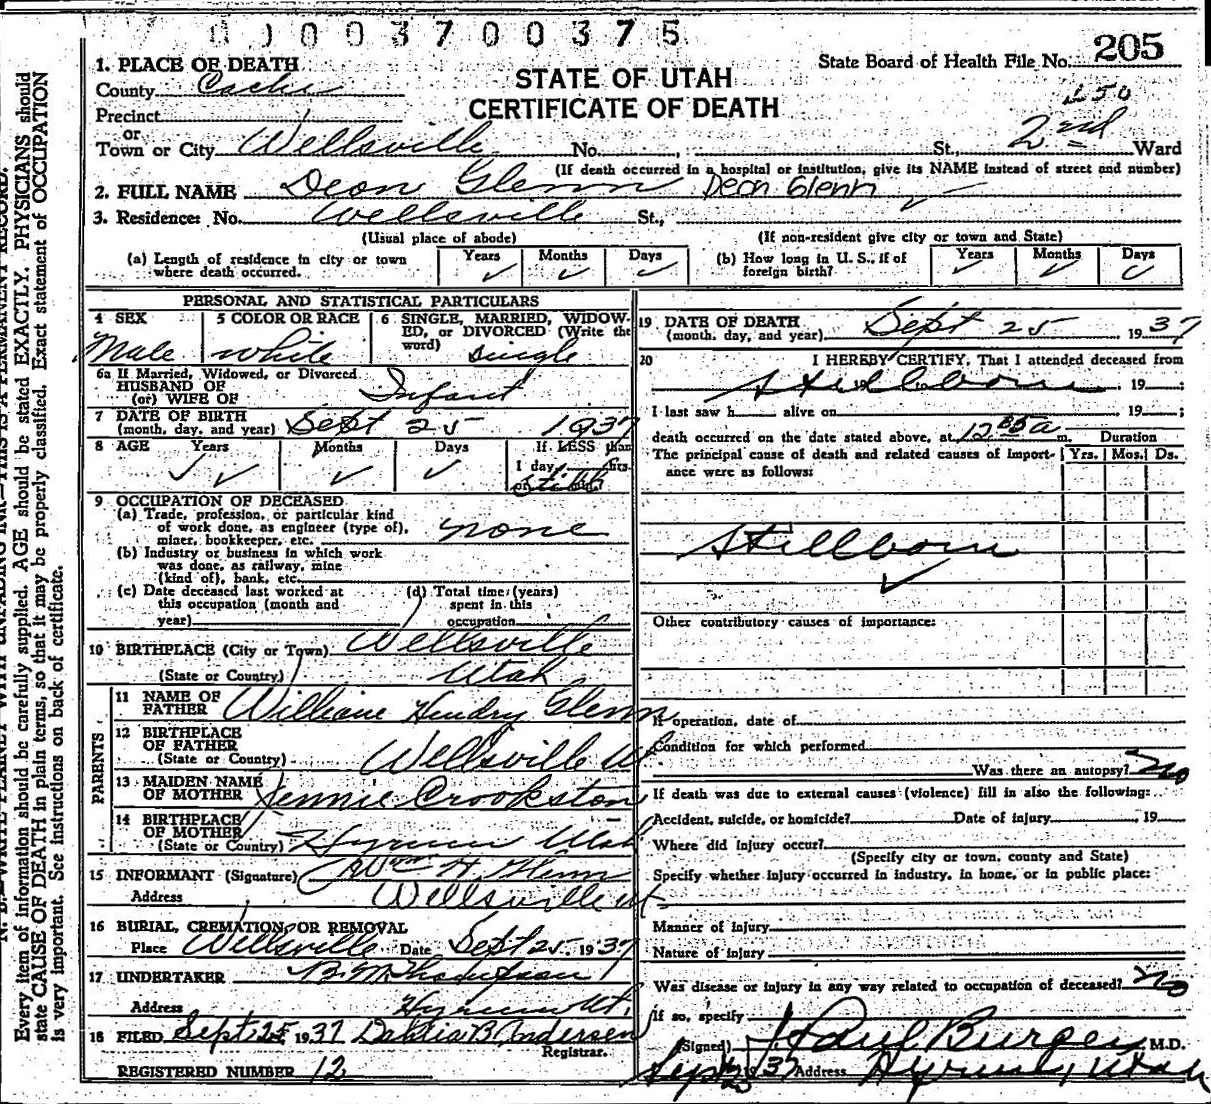 0 0 0 0 3 7 0 0 3 7 5
State Board of Health File No. 205
STATE OF UTAH
CERTIFICATE OF DEATH
1. PLACE OF DEATH
County Cache
Precinct
or
Town or City Wellsville No. , St., 2nd Ward
(If death occurred in a hospital or institution, give its NAME instead of street and number)
2. FULL NAME Deon Glenn Deon Glenn
3. Residence: No. Wellsville St.,
(Usual place of abode) (If non-resident give city or town and State)
(a) Length of residence in city or town where death occurred. Years ✓ Months ✓ Days ✓
(b) How long in U. S., if of foreign birth? Years ✓ Months ✓ Days ✓
PERSONAL AND STATISTICAL PARTICULARS
4 SEX Male
5 COLOR OR RACE white
6 SINGLE, MARRIED, WIDOWED, or DIVORCED (Write the word) single
6a If Married, Widowed, or Divorced
HUSBAND OF
(or) WIFE OF Infant
7 DATE OF BIRTH
(month, day, and year) Sept 25 1937
8 AGE Years ✓ Months ✓ Days ✓ If LESS than
1 day, hrs.
or min.?
9 OCCUPATION OF DECEASED
(a) Trade, profession, or particular kind
of work done, as engineer (type of),
miner, bookkeeper, etc. none
(b) Industry or business in which work
was done, as railway, mine
(kind of), bank, etc.
(c) Date deceased last worked at
this occupation (month and
year)
(d) Total time (years)
spent in this
occupation
10 BIRTHPLACE (City or Town) Wellsville
(State or Country) Utah
PARENTS
11 NAME OF
FATHER William Hendry Glenn
12 BIRTHPLACE
OF FATHER
(State or Country) Wellsville Ut.
13 MAIDEN NAME
OF MOTHER Jennie Crookston
14 BIRTHPLACE
OF MOTHER
(State or Country) Hyrum Utah
15 INFORMANT (Signature) Wm H. Glenn
Address Wellsville Ut
16 BURIAL, CREMATION, OR REMOVAL
Place Wellsville Date Sept 25 1937
17 UNDERTAKER
Address Hyrum Ut.
18 FILED Sept 25 1937 Dahlia B. Andersen
Registrar.
REGISTERED NUMBER 12
19 DATE OF DEATH
(month, day, and year) Sept 25 1937
20 I HEREBY CERTIFY, That I attended deceased from
Stillborn , 19 ;
I last saw h alive on 19 ;
death occurred on the date stated above, at 12 a m. Duration
The principal cause of death and related causes of importance were as follows: Yrs. Mos. Ds.
Stillborn
✓
Other contributory causes of importance:
If operation, date of
Condition for which performed
Was there an autopsy? No
If death was due to external causes (violence) fill in also the following:
Accident, suicide, or homicide? Date of injury 19
Where did injury occur?
(Specify city or town, county and State)
Specify whether injury occurred in industry, in home, or in public place:
Manner of injury
Nature of injury
Was disease or injury in any way related to occupation of deceased? No
If so, specify
(Signed) J. Paul Burgess M.D.
Sept 25 1937 Address Hyrum, Utah
N. B.—WRITE PLAINLY WITH UNFADING INK—THIS IS A PERMANENT RECORD.
Every item of information should be carefully supplied. AGE should be stated EXACTLY. PHYSICIANS should
state CAUSE OF DEATH in plain terms, so that it may be properly classified. Exact statement of OCCUPATION
is very important. See instructions on back of certificate.